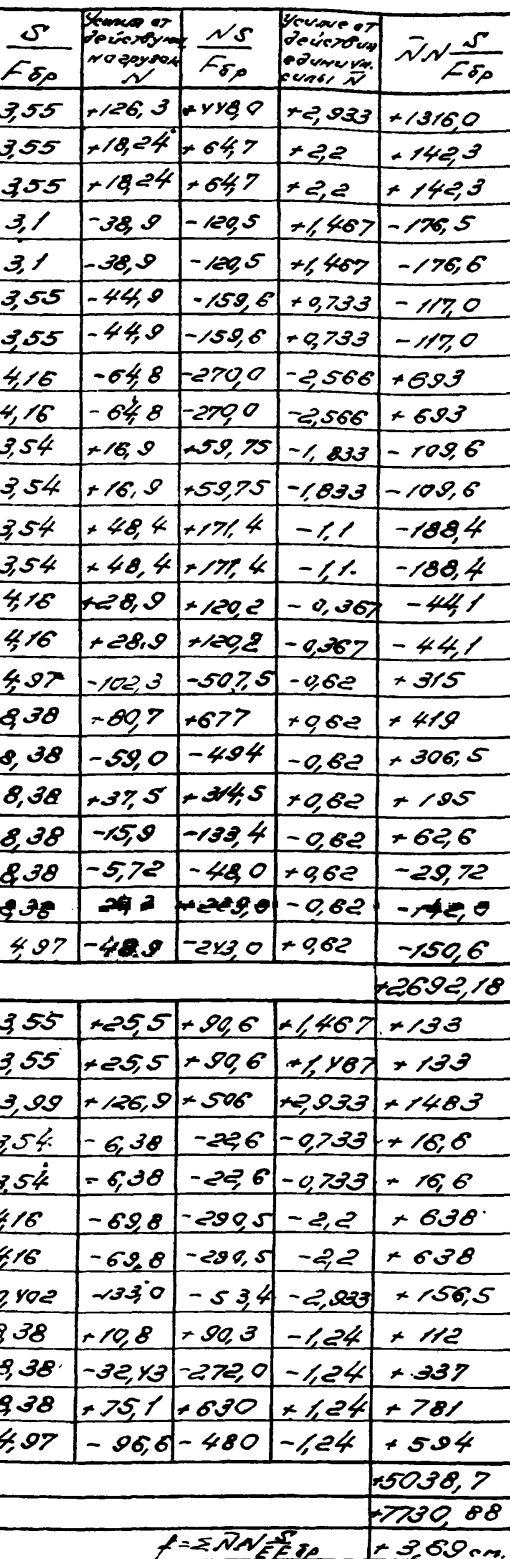 S / Fбр | Усилия от действующ. нагрузок N | NS / Fбр | Усилие от действия единичн. силы N̄ | N̄N S / Fбр
3,55 | +126,3 | +448,0 | +2,933 | +1316,0
3,55 | +18,24 | +64,7 | +2,2 | +142,3
3,55 | +18,24 | +64,7 | +2,2 | +142,3
3,1 | -38,9 | -120,5 | +1,467 | -176,5
3,1 | -38,9 | -120,5 | +1,467 | -176,6
3,55 | -44,9 | -159,6 | +0,733 | -117,0
3,55 | -44,9 | -159,6 | +0,733 | -117,0
4,16 | -64,8 | -270,0 | -2,566 | +693
4,16 | -64,8 | -270,0 | -2,566 | +693
3,54 | +16,9 | +59,75 | -1,833 | -109,6
3,54 | +16,9 | +59,75 | -1,833 | -109,6
3,54 | +48,4 | +171,4 | -1,1 | -188,4
3,54 | +48,4 | +171,4 | -1,1 | -188,4
4,16 | +28,9 | +120,2 | -0,367 | -44,1
4,16 | +28,9 | +120,2 | -0,367 | -44,1
4,97 | -102,3 | -507,5 | -0,62 | +315
8,38 | -80,7 | +677 | +0,62 | +419
8,38 | -59,0 | -494 | -0,62 | +306,5
8,38 | +37,5 | +314,5 | +0,62 | +195
8,38 | -15,9 | -133,4 | -0,62 | +62,6
8,38 | -5,72 | -48,0 | +0,62 | -29,72
8,38 | -0,62
4,97 | -48,9 | -243,0 | +0,62 | -150,6
+2692,18
3,55 | +25,5 | +90,6 | +1,467 | +133
3,55 | +25,5 | +90,6 | +1,467 | +133
3,99 | +126,9 | +506 | +2,933 | +1483
3,54 | -6,38 | -22,6 | -0,733 | +16,6
3,54 | -6,38 | -22,6 | -0,733 | +16,6
4,16 | -69,8 | -290,5 | -2,2 | +638
4,16 | -69,8 | -290,5 | -2,2 | +638
0,402 | -133,0 | -53,4 | -2,933 | +156,5
8,38 | +10,8 | +90,3 | -1,24 | +112
8,38 | -32,43 | -272,0 | -1,24 | +337
8,38 | +75,1 | +630 | +1,24 | +781
4,97 | -96,6 | -480 | -1,24 | +594
+5038,7
+7730,88
f=Σ N̄N S / E Fбр | +3,69 см.